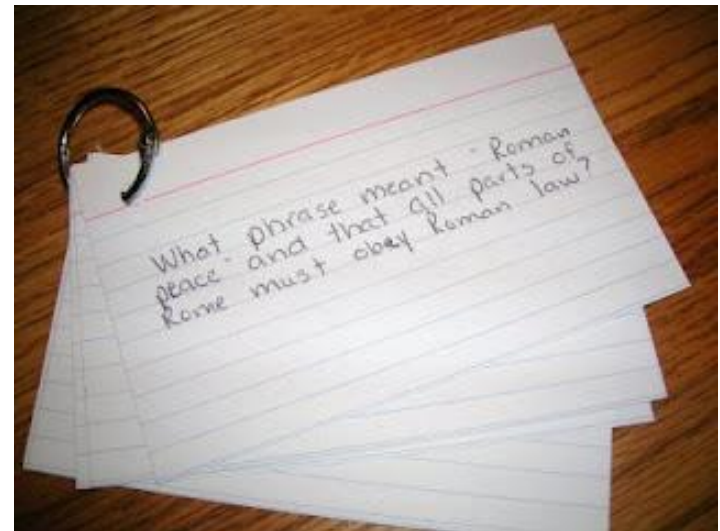 What phrase meant - Roman
peace - and that all parts of
Rome must obey Roman law?